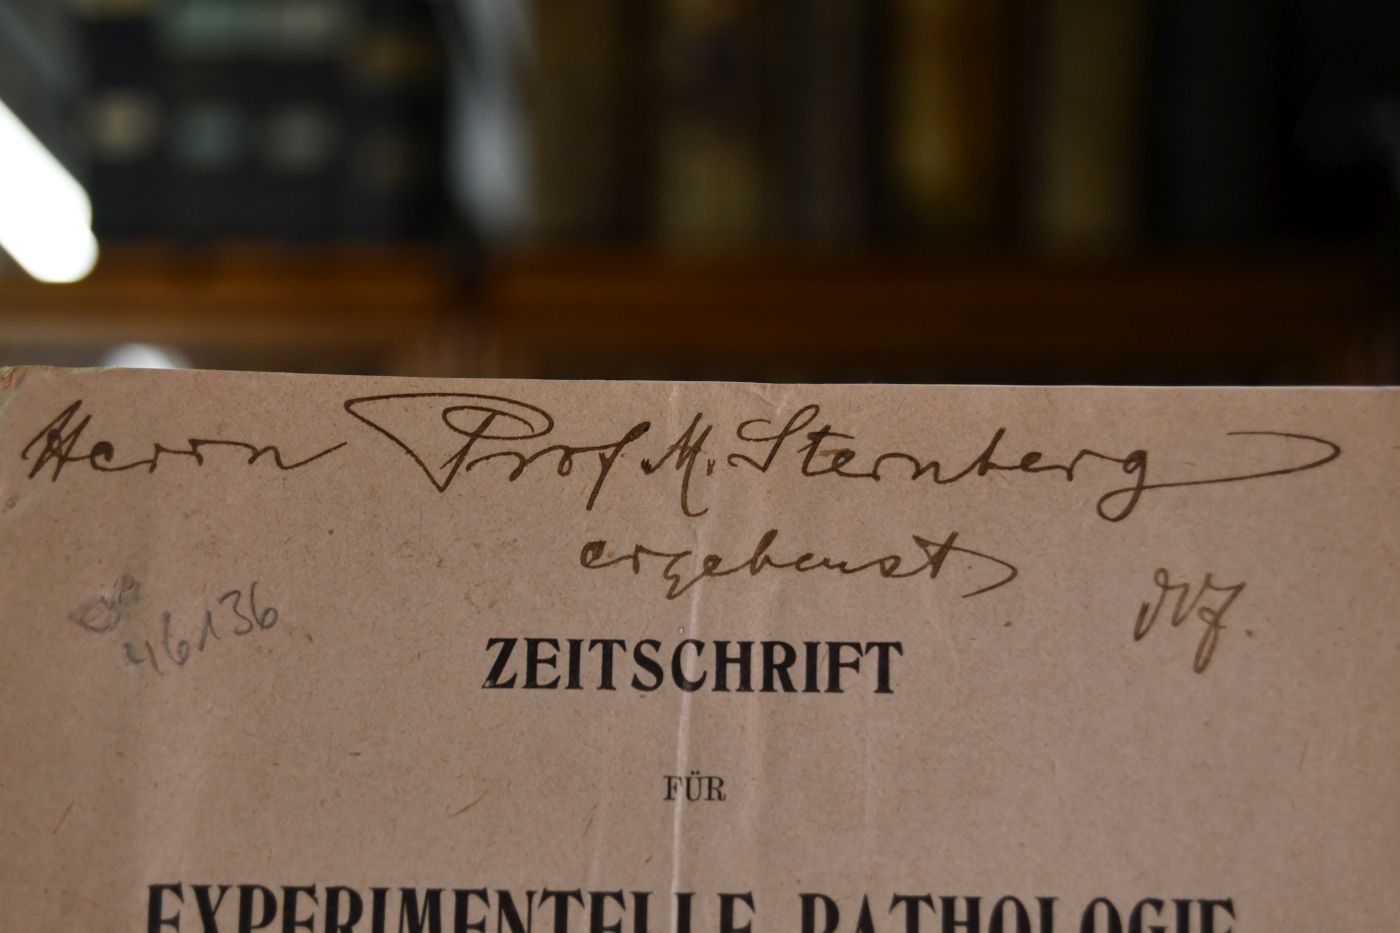 Herrn Prof. M. Sternberg
ergebenst
46136
ZEITSCHRIFT
FÜR
EXPERIMENTELLE PATHOLOGIE